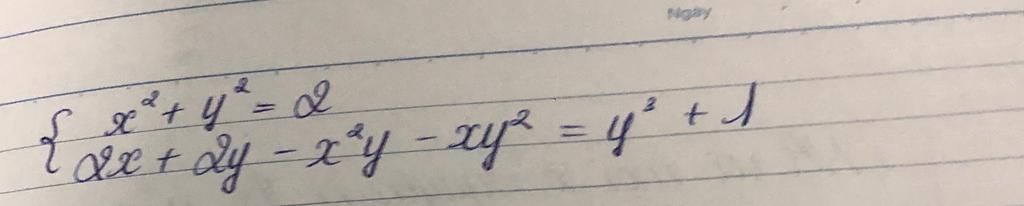 Ngày
{ x² + y² = 2
2x + 2y - x²y - xy² = y³ + 1